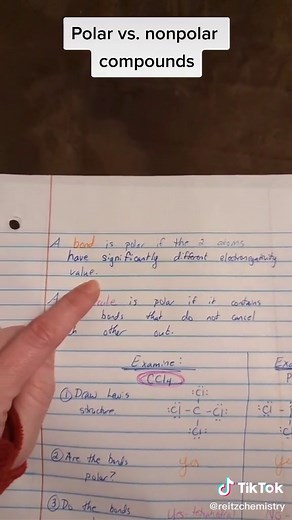 Polar vs. nonpolar
compounds
A bond is polar if the 2 atoms
have significantly different electronegativity
value.
A is polar if it contains
bonds that do not cancel
other out.
Examine:
CCl4
① Draw Lewis
structure
:Cl:
:Cl - C - Cl:
:Cl:
② Are the bonds
polar?
yes
③ Do the bonds
TikTok
@reitzchemistry